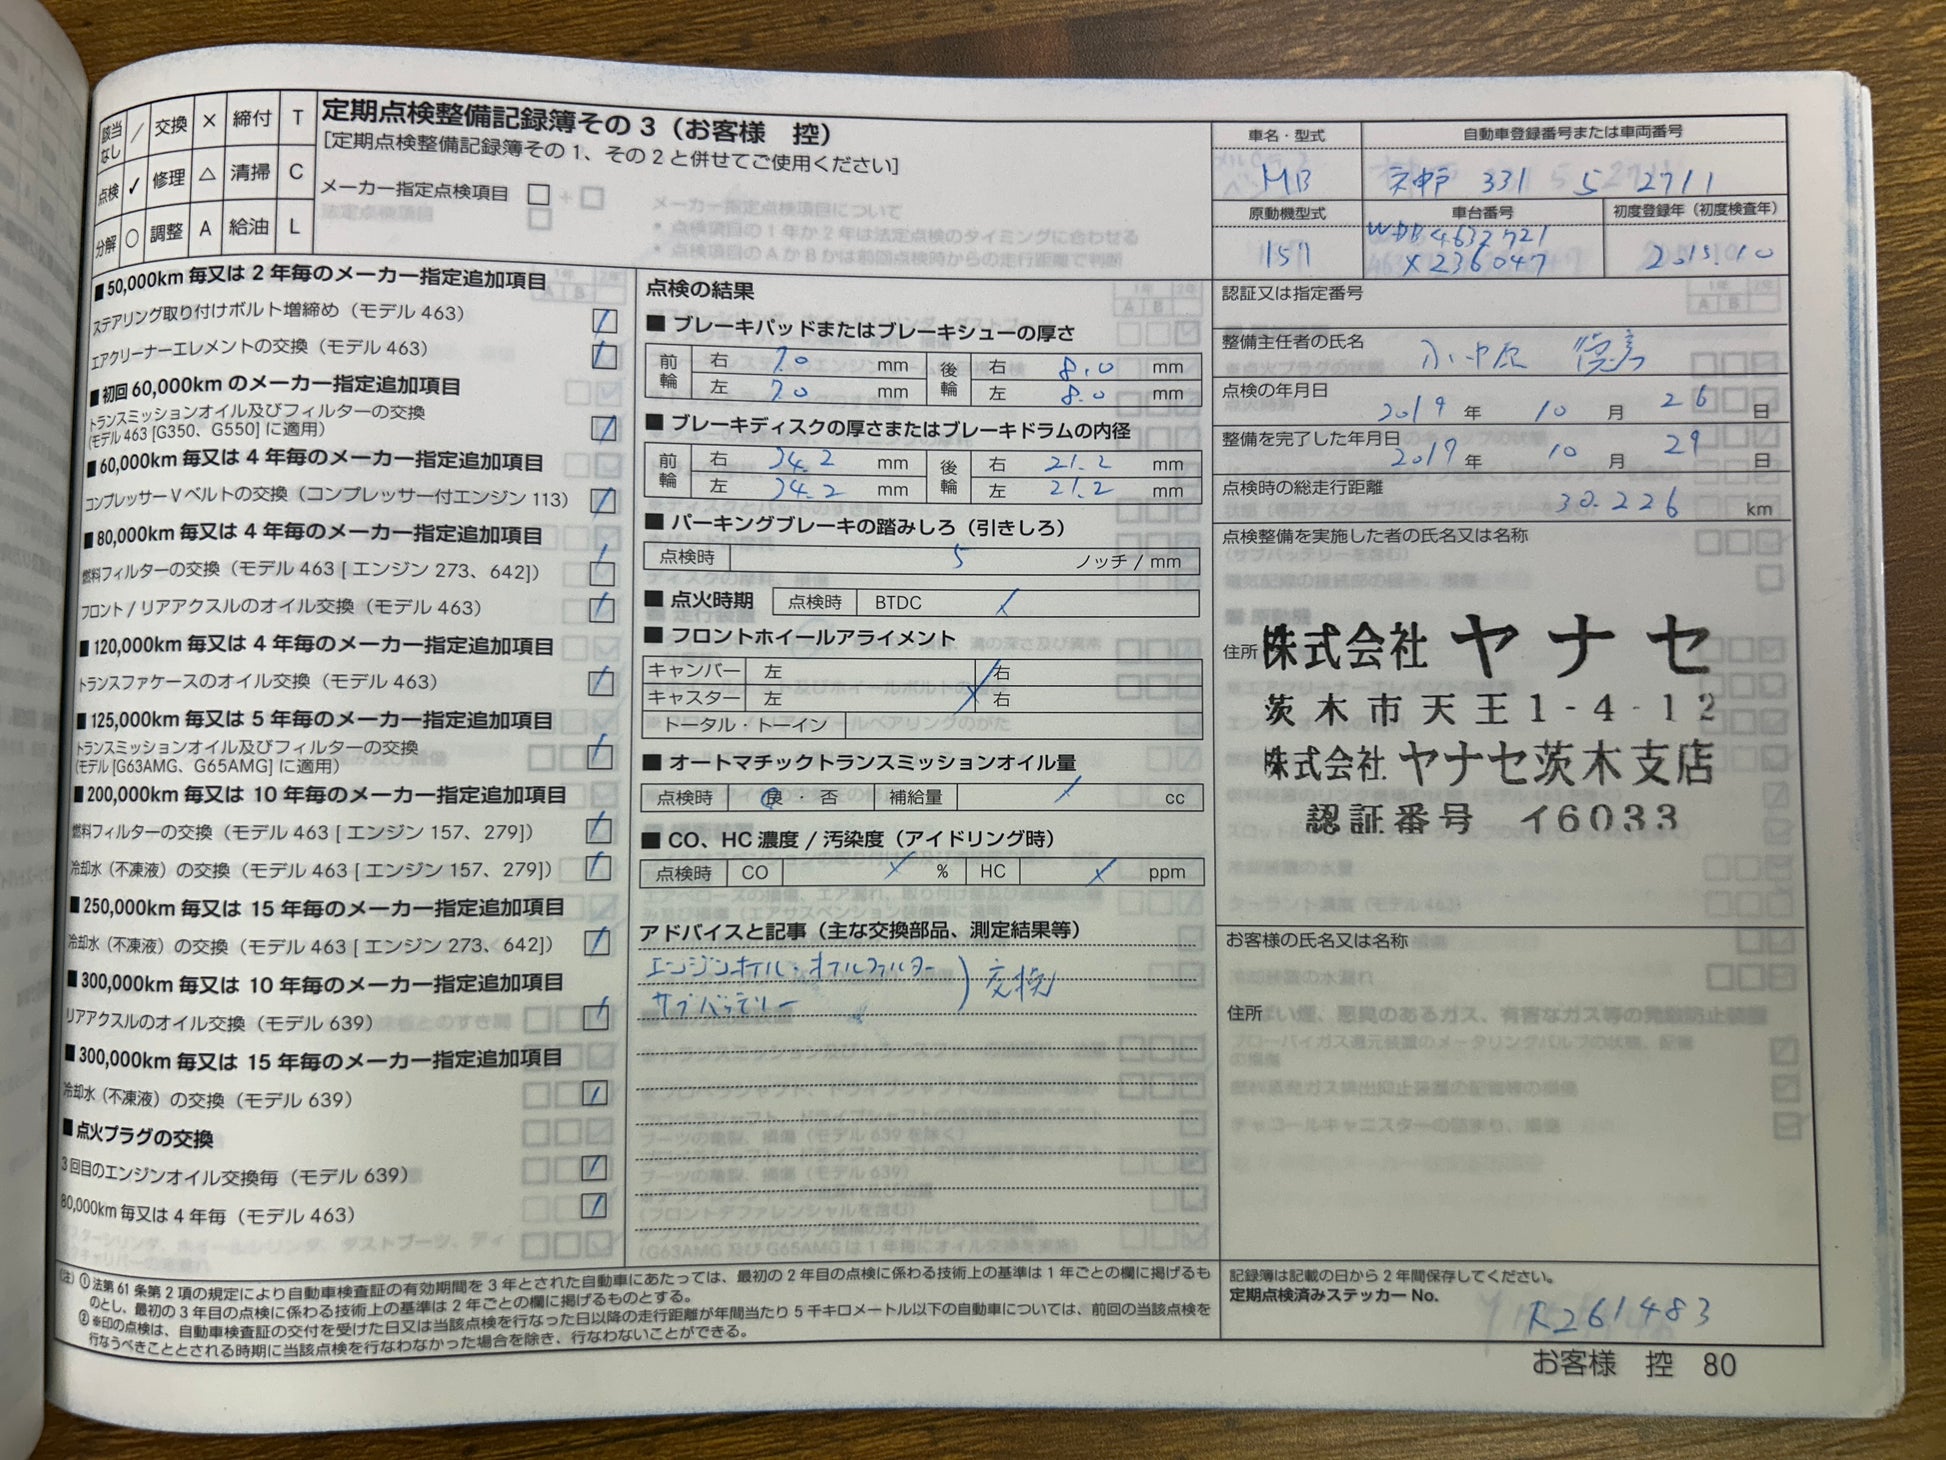 該当なし ／ 交換 × 締付 T
点検 ✓ 修理 △ 清掃 C
分解 ○ 調整 A 給油 L
定期点検整備記録簿その3（お客様 控）
[定期点検整備記録簿その1、その2と併せてご使用ください]
メーカー指定点検項目
■50,000km 毎又は 2 年毎のメーカー指定追加項目
ステアリング取り付けボルト増締め（モデル 463）
エアクリーナーエレメントの交換（モデル 463）
■初回 60,000km のメーカー指定追加項目
トランスミッションオイル及びフィルターの交換
(モデル 463 [G350、G550] に適用)
■60,000km 毎又は 4 年毎のメーカー指定追加項目
コンプレッサー V ベルトの交換（コンプレッサー付エンジン 113）
■80,000km 毎又は 4 年毎のメーカー指定追加項目
燃料フィルターの交換（モデル 463 [ エンジン 273、642]）
フロント / リアアクスルのオイル交換（モデル 463）
■120,000km 毎又は 4 年毎のメーカー指定追加項目
トランスファケースのオイル交換（モデル 463）
■125,000km 毎又は 5 年毎のメーカー指定追加項目
トランスミッションオイル及びフィルターの交換
(モデル [G63AMG、G65AMG] に適用)
■200,000km 毎又は 10 年毎のメーカー指定追加項目
燃料フィルターの交換（モデル 463 [ エンジン 157、279]）
冷却水（不凍液）の交換（モデル 463 [ エンジン 157、279]）
■250,000km 毎又は 15 年毎のメーカー指定追加項目
冷却水（不凍液）の交換（モデル 463 [ エンジン 273、642]）
■300,000km 毎又は 10 年毎のメーカー指定追加項目
リアアクスルのオイル交換（モデル 639）
■300,000km 毎又は 15 年毎のメーカー指定追加項目
冷却水（不凍液）の交換（モデル 639）
■点火プラグの交換
3 回目のエンジンオイル交換毎（モデル 639）
80,000km 毎又は 4 年毎（モデル 463）
点検の結果
■ ブレーキパッドまたはブレーキシューの厚さ
前輪 右 7.0 mm 後輪 右 8.0 mm
左 7.0 mm 左 8.0 mm
■ ブレーキディスクの厚さまたはブレーキドラムの内径
前輪 右 34.2 mm 後輪 右 21.2 mm
左 34.2 mm 左 21.2 mm
■ パーキングブレーキの踏みしろ（引きしろ）
点検時 5 ノッチ / mm
■ 点火時期 点検時 BTDC
■ フロントホイールアライメント
キャンバー 左 右
キャスター 左 右
トータル・トーイン
■ オートマチックトランスミッションオイル量
点検時 良 ・ 否 補給量 cc
■ CO、HC 濃度 / 汚染度（アイドリング時）
点検時 CO % HC ppm
アドバイスと記事（主な交換部品、測定結果等）
エンジンオイル・オイルフィルター
サブバッテリー ）交換
車名・型式 自動車登録番号または車両番号
MB 神戸 331 5 2711
原動機型式 車台番号 初度登録年（初度検査年）
157 WDB4632721 X236047 2015.10
認証又は指定番号
整備主任者の氏名
点検の年月日 2019 年 10 月 26 日
整備を完了した年月日 2019 年 10 月 29 日
点検時の総走行距離 30.226 km
点検整備を実施した者の氏名又は名称
住所 株式会社 ヤナセ
茨木市天王1-4-12
株式会社 ヤナセ茨木支店
認証番号 イ6033
お客様の氏名又は名称
住所
（注）① 法第 61 条第 2 項の規定により自動車検査証の有効期間を 3 年とされた自動車にあたっては、最初の 2 年目の点検に係わる技術上の基準は 1 年ごとの欄に掲げるも
のとし、最初の 3 年目の点検に係わる技術上の基準は 2 年ごとの欄に掲げるものとする。
② ※印の点検は、自動車検査証の交付を受けた日又は当該点検を行なった日以降の走行距離が年間当たり 5 千キロメートル以下の自動車については、前回の当該点検を
行なうべきこととされる時期に当該点検を行なわなかった場合を除き、行なわないことができる。
記録簿は記載の日から 2 年間保存してください。
定期点検済みステッカー No.
R261483
お客様 控 80